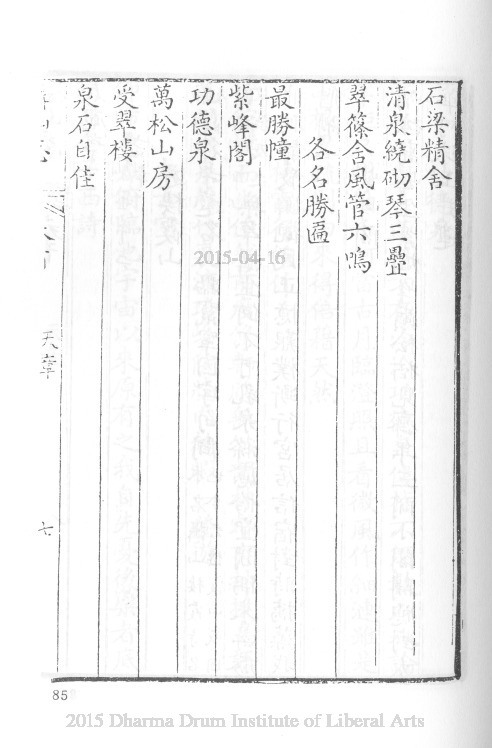 石梁精舍
清泉繞砌琴三疊
翠篠含風管六鳴
各名勝匾
最勝幢
紫峰閣
功德泉
萬松山房
受翠樓
泉石自佳
天章
七
85
2015-04-16
2015 Dharma Drum Institute of Liberal Arts